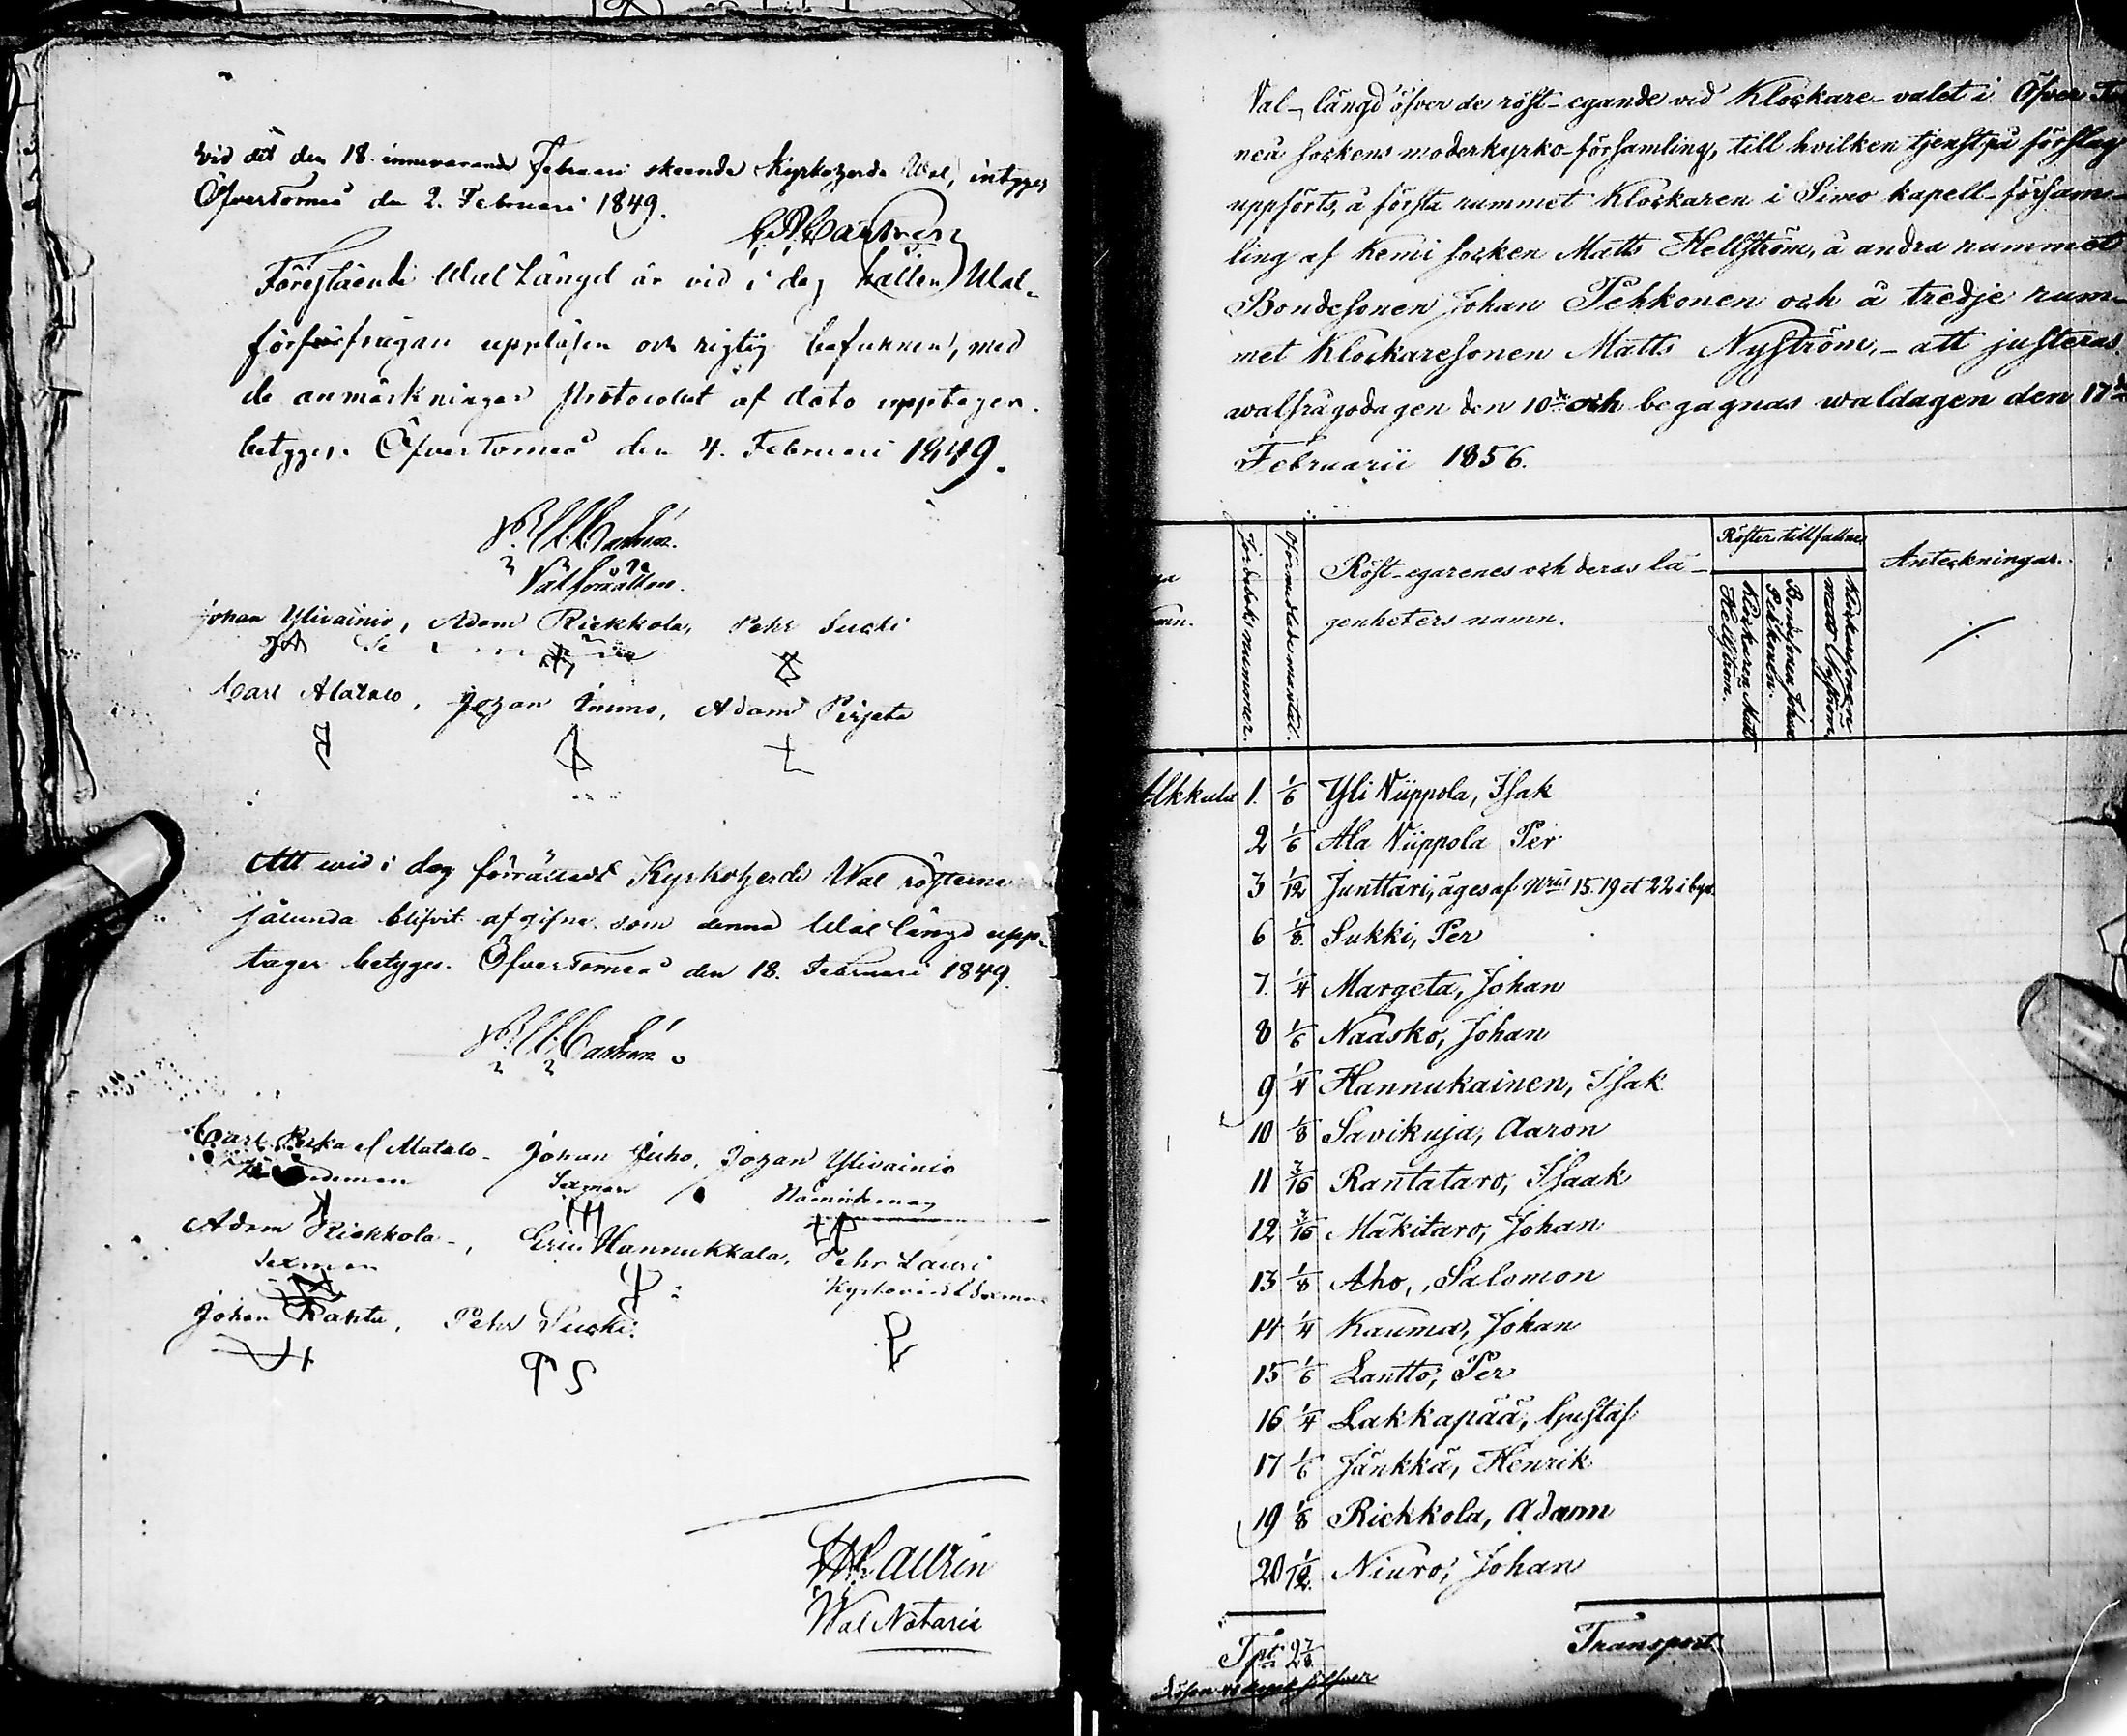 Vid det den 18. innevarande Februari skeende Kyrkoherde Wal, intygas
Öfvertorneå den 2. Februari 1849.
Förestående Wal Längd är vid i dag hållen Wal-
förfrågan uppläsen och rigtig befunnen, med
de anmärkningar Protocolet af dato upptager.
betygas. Öfvertorneå den 4. Februari 1849.
Valförrättare.
Johan Ylivainio, Adam Rickkola, Pehr Sucki
Carl Alatalo, Johan Luuno, Adam Pirjeta
Att wid i dag förrättadt Kyrkoherde Wal rösterne
sålunda blifvit afgifne som denna Wal längd upp-
tager betygas. Öfvertorneå den 18. Februari 1849.
Carl Matalo Johan Juho, Johan Ylivainio
Sexman Nämndeman
Adam Rickkola, Eric Hannukkala, Pehr Lauri
Sexman
Johan Ranta, Pehr Sucki.
P S
Laurin
Wal Notarie
Val-längd öfver de röst-egande vid Klockare-valet i Öfver Tor
neå sockens moderkyrko-församling, till hvilken tjenst på förslag
uppförts, å första rummet Klockaren i Simo kapell-försam-
ling af Kemi socken Matts Hellström, å andra rummet
Bondesonen Johan Pekkonen och å tredje rum-
met Klockaresonen Matts Nyström, – att justeras
walfrågodagen den 10de och begagnas waldagen den 17de
Februarii 1856.
Jordeboks nummer.
Oförmedlade mantal.
Röst-egarenes och deras lä-
genheters namn.
Röster tillfallne
Klockaren Matts Hellström.
Bondesonen Johan Pekkonen.
Klockaresonen Matts Nyström
Anteckningar.
Alkkula 1. 1/6 Yli Niippola, Isak
2 1/6 Ala Niippola Per
3 1/12 Junttari, äges af Nris 15. 19 et 22 i byn.
6 1/8 Sukki, Per
7. 1/4 Margeta, Johan
8 1/6 Naasko, Johan
9 1/4 Hannukainen, Isak
10 1/8 Savikuja, Aaron
11 3/16 Rantataro, Isaak
12 3/16 Mäkitaro, Johan
13 1/8 Aho, Salomon
14 1/4 Kauma, Johan
15 1/6 Lantto, Per
16 1/4 Lakkapää, Gustaf
17 1/6 Jänkkä, Henrik
19 1/8 Rickkola, Adam
20 1/12 Niuro, Johan
Tpt 2 7/8 Transport.